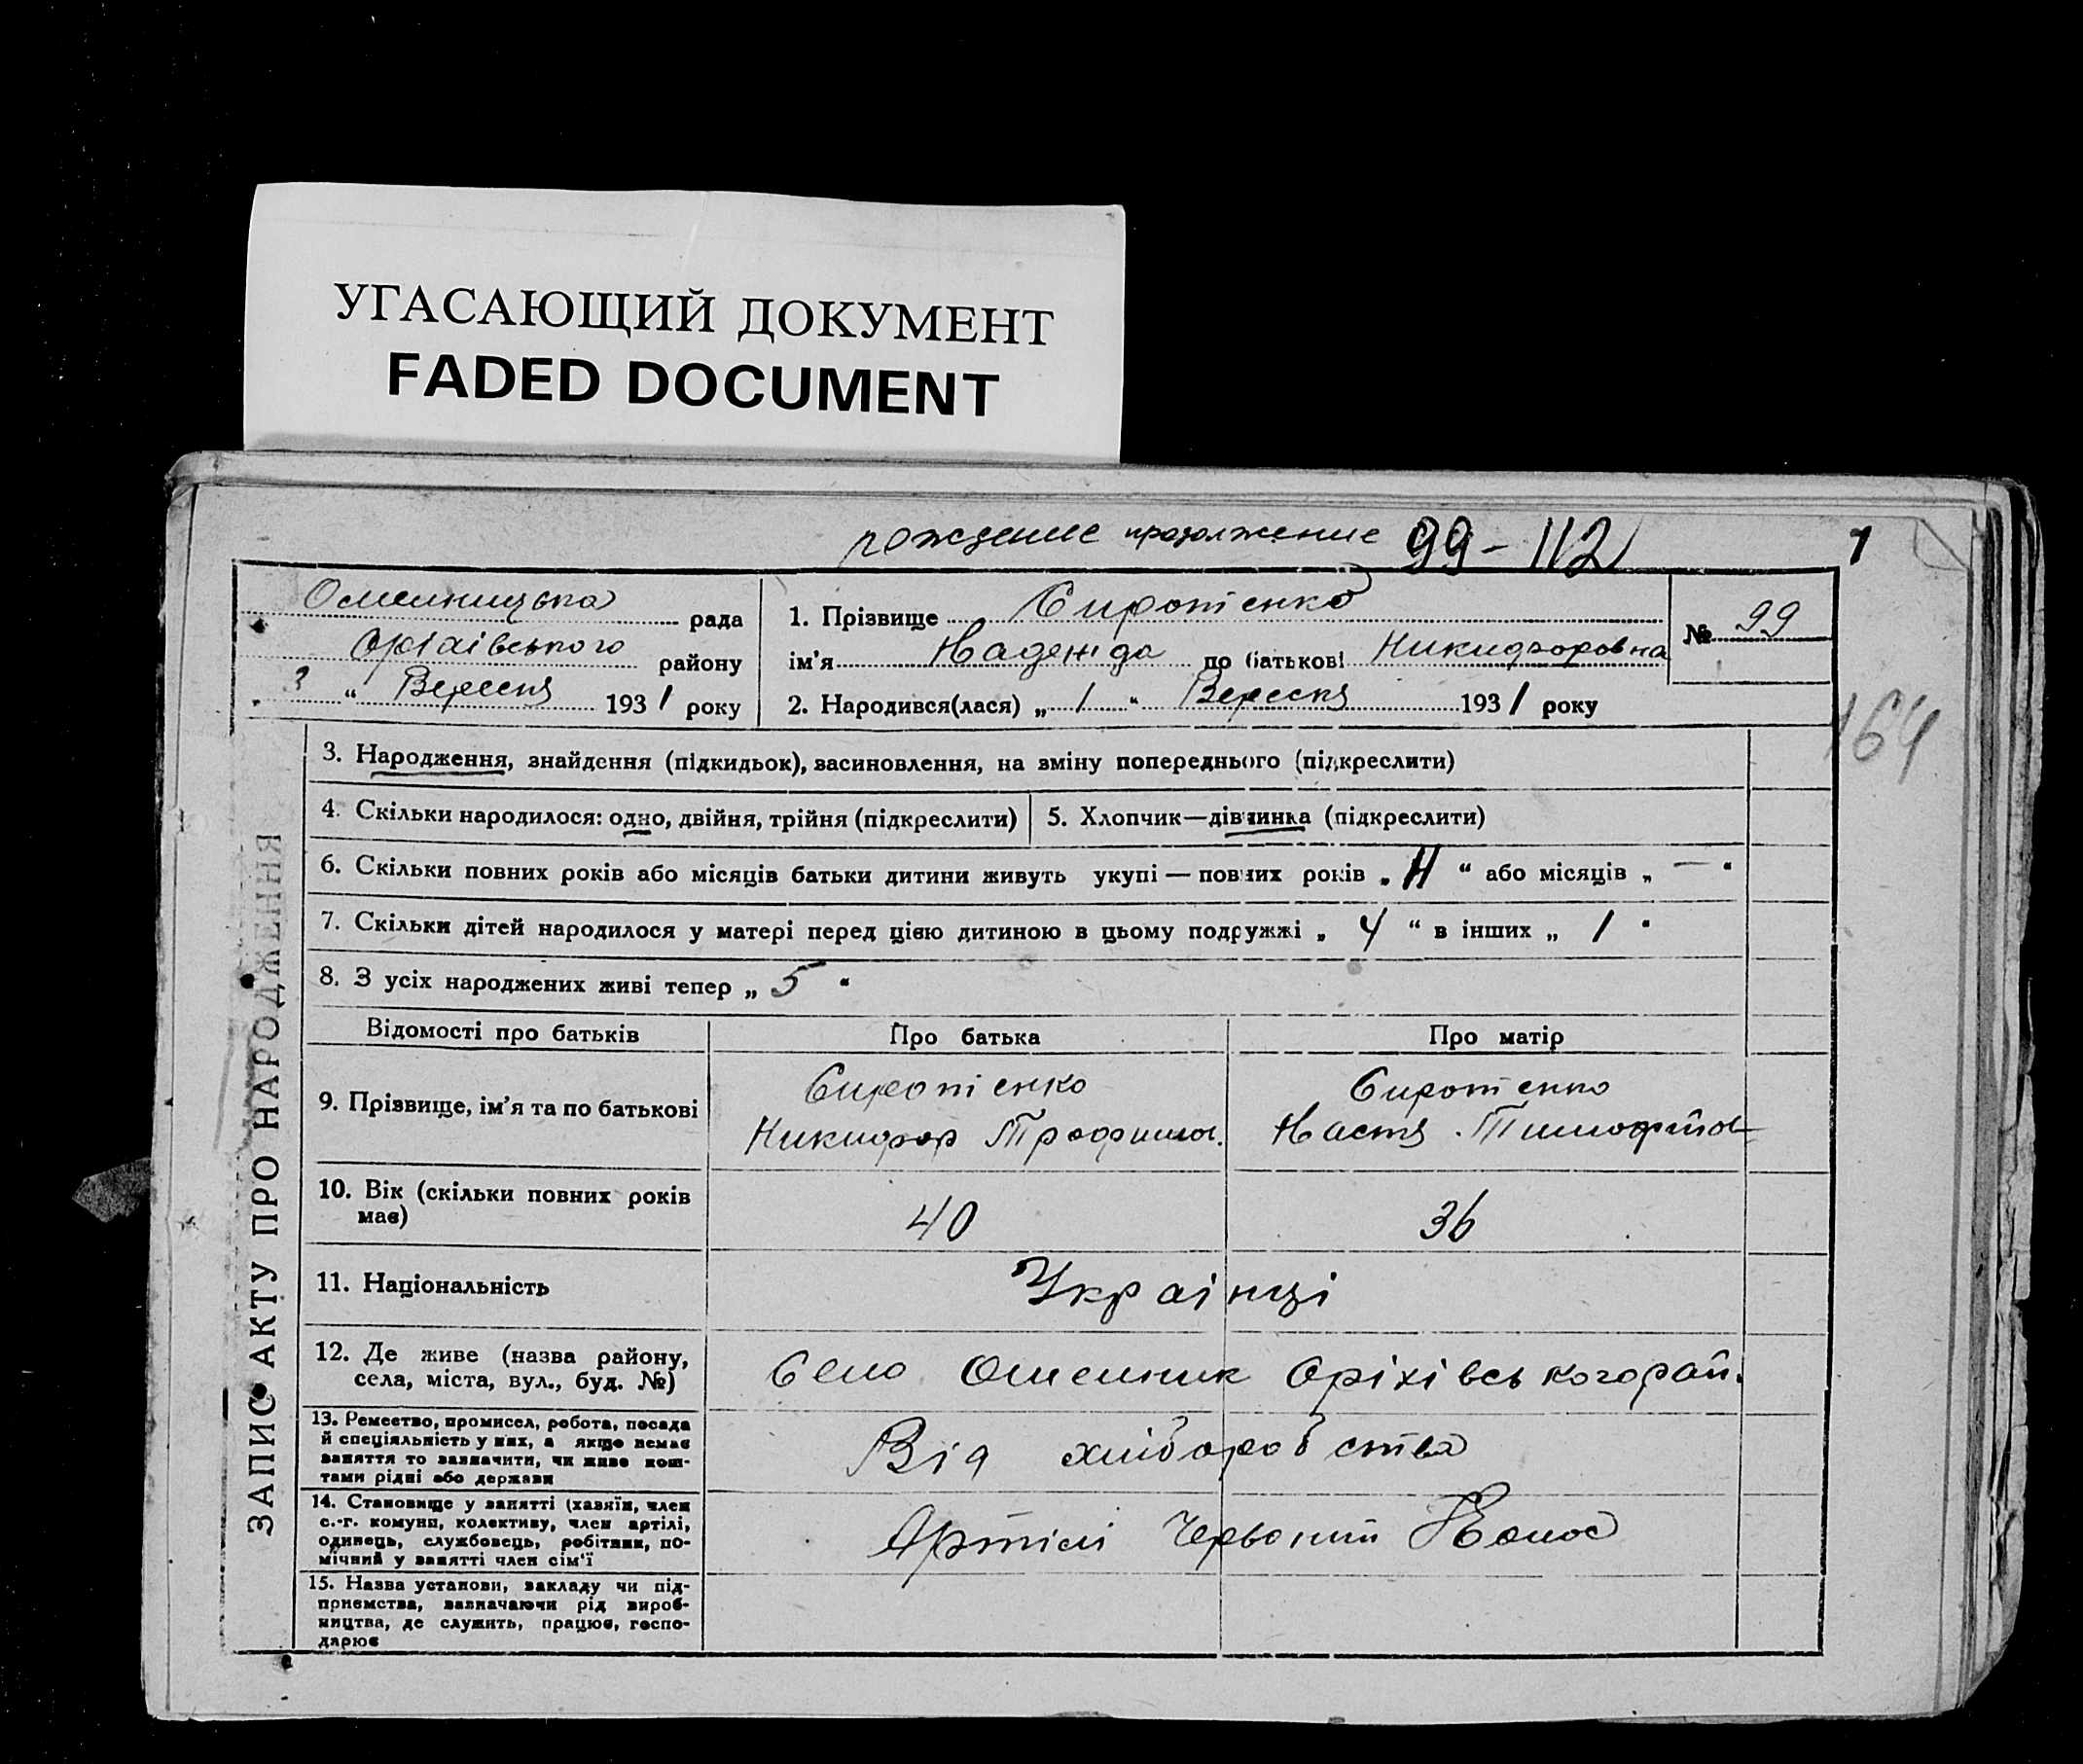 УГАСАЮЩИЙ ДОКУМЕНТ
FADED DOCUMENT
рождение продолжение 99-112
1
Омельницька рада
Оріхівського району
„ 3 “ Вересня 1931 року
1. Прізвище Сиротенко
ім'я Надежда по батькові Никифоровна
2. Народився(лася) „ 1 “ Вересня 1931 року
№ 99
164
ЗАПИС АКТУ ПРО НАРОДЖЕННЯ
3. Народження, знайдення (підкидьок), засиновлення, на зміну попереднього (підкреслити)
4. Скільки народилося: одно, двійня, трійня (підкреслити)
5. Хлопчик—дівчинка (підкреслити)
6. Скільки повних років або місяців батьки дитини живуть укупі — повних років „ 11 “ або місяців „ — “
7. Скільки дітей народилося у матері перед цією дитиною в цьому подружжі „ 4 “ в інших „ 1 “
8. З усіх народжених живі тепер „ 5 “
Відомості про батьків
Про батька
Про матір
9. Прізвище, ім'я та по батькові
Сиротенко
Никифор Трофимов.
Сиротенко
Настя Тимофійов
10. Вік (скільки повних років
має)
40
36
11. Національність
Українці
12. Де живе (назва району,
села, міста, вул., буд. №)
Село Омельник Оріхівського рай.
13. Ремество, промисел, робота, посада
й спеціяльність у них, а якщо немає
заняття то зазначити, чи живе кош-
тами рідні або держави
Від хліборобства
14. Становище у занятті (хазяїн, член
с.-г. комуни, колективу, член артілі,
одинець, службовець, робітник, по-
мічний у занятті член сім'ї
Артілі Червоний Колос
15. Назва установи, закладу чи під-
приємства, зазначаючи рід вироб-
ництва, де служить, працює, госпо-
дарює